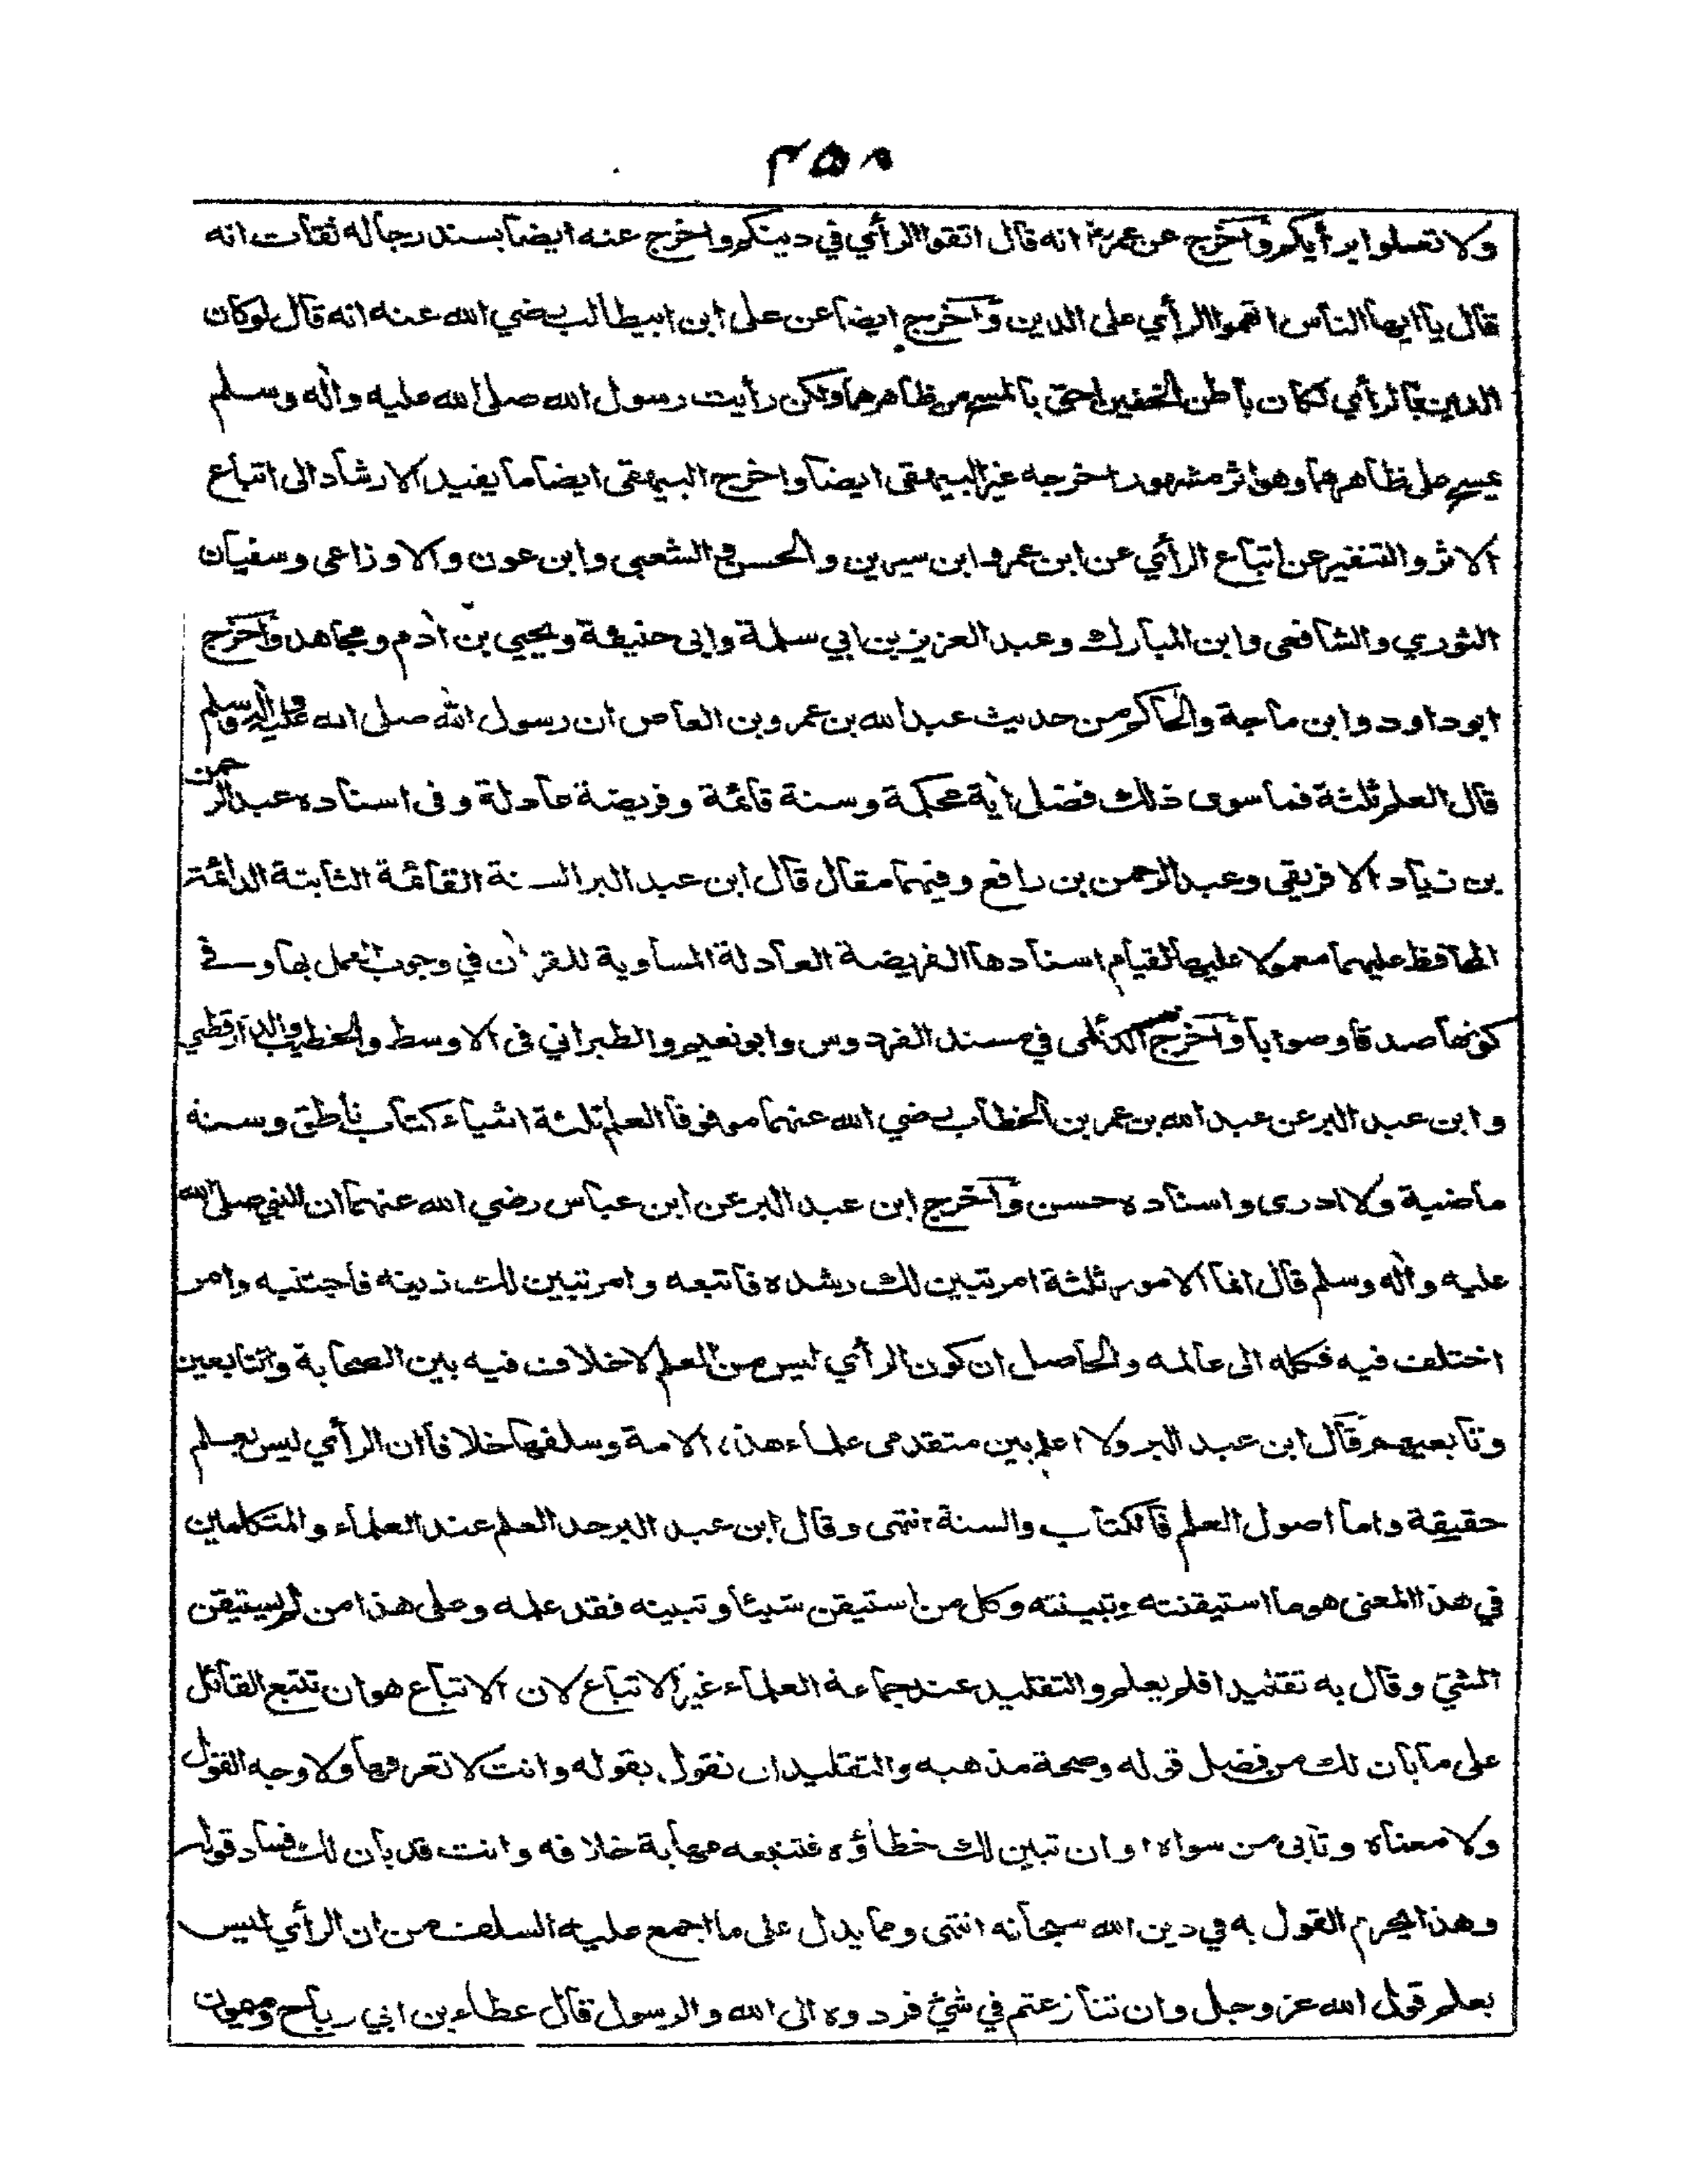 ٣٥٨
ولا تعملوا برأيكم وأخرج عن عمر رض انه قال اتقوا الرأي في دينكم واخرج عنه ايضا بسند رجاله ثقات انه
قال يا ايها الناس اتهموا الرأي على الدين وأخرج ايضا عن على ابن ابيطالب رضي الله عنه انه قال لوكان
الدين بالرأي لكان باطن الخفين احق بالمسح من ظاهرهما ولكن رأيت رسول الله صلى الله عليه واٰله وسلم
يمسح على ظاهرهما وهو اثر مشهور اخرجه غير البيهقى ايضا واخرج البيهقى ايضا ما يفيد الارشاد الى اتباع
الاثر والتنفير عن اتباع الرأي عن ابن عمر وابن سيرين والحسن والشعبي وابن عون والاوزاعى وسفيان
الثوري والشافعى وابن المبارك وعبد العزيز بن ابي سلمة وابى حنيفة ويحيي بن اٰدم ومجاهد وأخرج
ابوداود وابن ماجة والحاكم من حديث عبد الله بن عمر وبن العاص ان رسول الله صلى الله عليه واله وسلم
قال العلم ثلثة فما سوى ذلك فضل اٰية محكمة وسنة قائمة وفريضة عادلة وفى اسناده عبد الرحمن
بن زياد الافريقى وعبد الرحمن بن رافع وفيهما مقال قال ابن عبد البر السنة القائمة الثابتة الدائمة
المحافظ عليهما معمولا عليها لقيام اسنادها الفريضة العادلة المساوية للقراٰن في وجوب العمل بها وفي
كونها صدقا وصوابا وأخرج الديلمى في مسند الفردوس وابو نعيم والطبراني فى الاوسط والخطيب والدارقطني
وابن عبد البر عن عبد الله بن عمر بن الخطاب رضي الله عنهما موقوفا العلم ثلثة اشياء كتاب ناطق وسنة
ماضية ولا ادرى واسناده حسن وأخرج ابن عبد البر عن ابن عباس رضي الله عنهما ان النبي صلى الله
عليه واٰله وسلم قال انما الامور ثلثة امر تبين لك رشده فاتبعه وامر تبين لك زيغه فاجتنبه وامر
اختلف فيه فكله الى عالمه والحاصل ان كون الرأي ليس من العلم لا خلاف فيه بين الصحابة والتابعين
وتابعيهم قال ابن عبد البر ولا اعلم بين متقدمى علماء هذه الامة وسلفها خلافا ان الرأي ليس بعلم
حقيقة واما اصول العلم فالكتاب والسنة انتهى وقال ابن عبد البر حد العلم عند العلماء والمتكلمين
في هذا المعنى هو ما استيقنته وتبينته وكل من استيقن شيئا وتبينه فقد علمه وعلى هذا من لم يستيقن
الشئ وقال به تقليدا فلم يعلم والتقليد عند جماعة العلماء غير الاتباع لان الاتباع هو ان تتبع القائل
على ما بان لك من فضل قوله وصحة مذهبه والتقليد ان نقول بقوله وانت لا تعرفها ولا وجه القول
ولا معناه وتابى من سواه او ان تبين لك خطاؤه فتتبعه مهابة خلافه وانت قد بان لك فساد قوله
وهذا يحرم القول به في دين الله سبحانه انتهى ومما يدل على ما اجمع عليه السلف من ان الرأي ليس
بعلم قول الله عز وجل وان تنازعتم في شئ فردوه الى الله والرسول قال عطاء بن ابي رباح وميمون